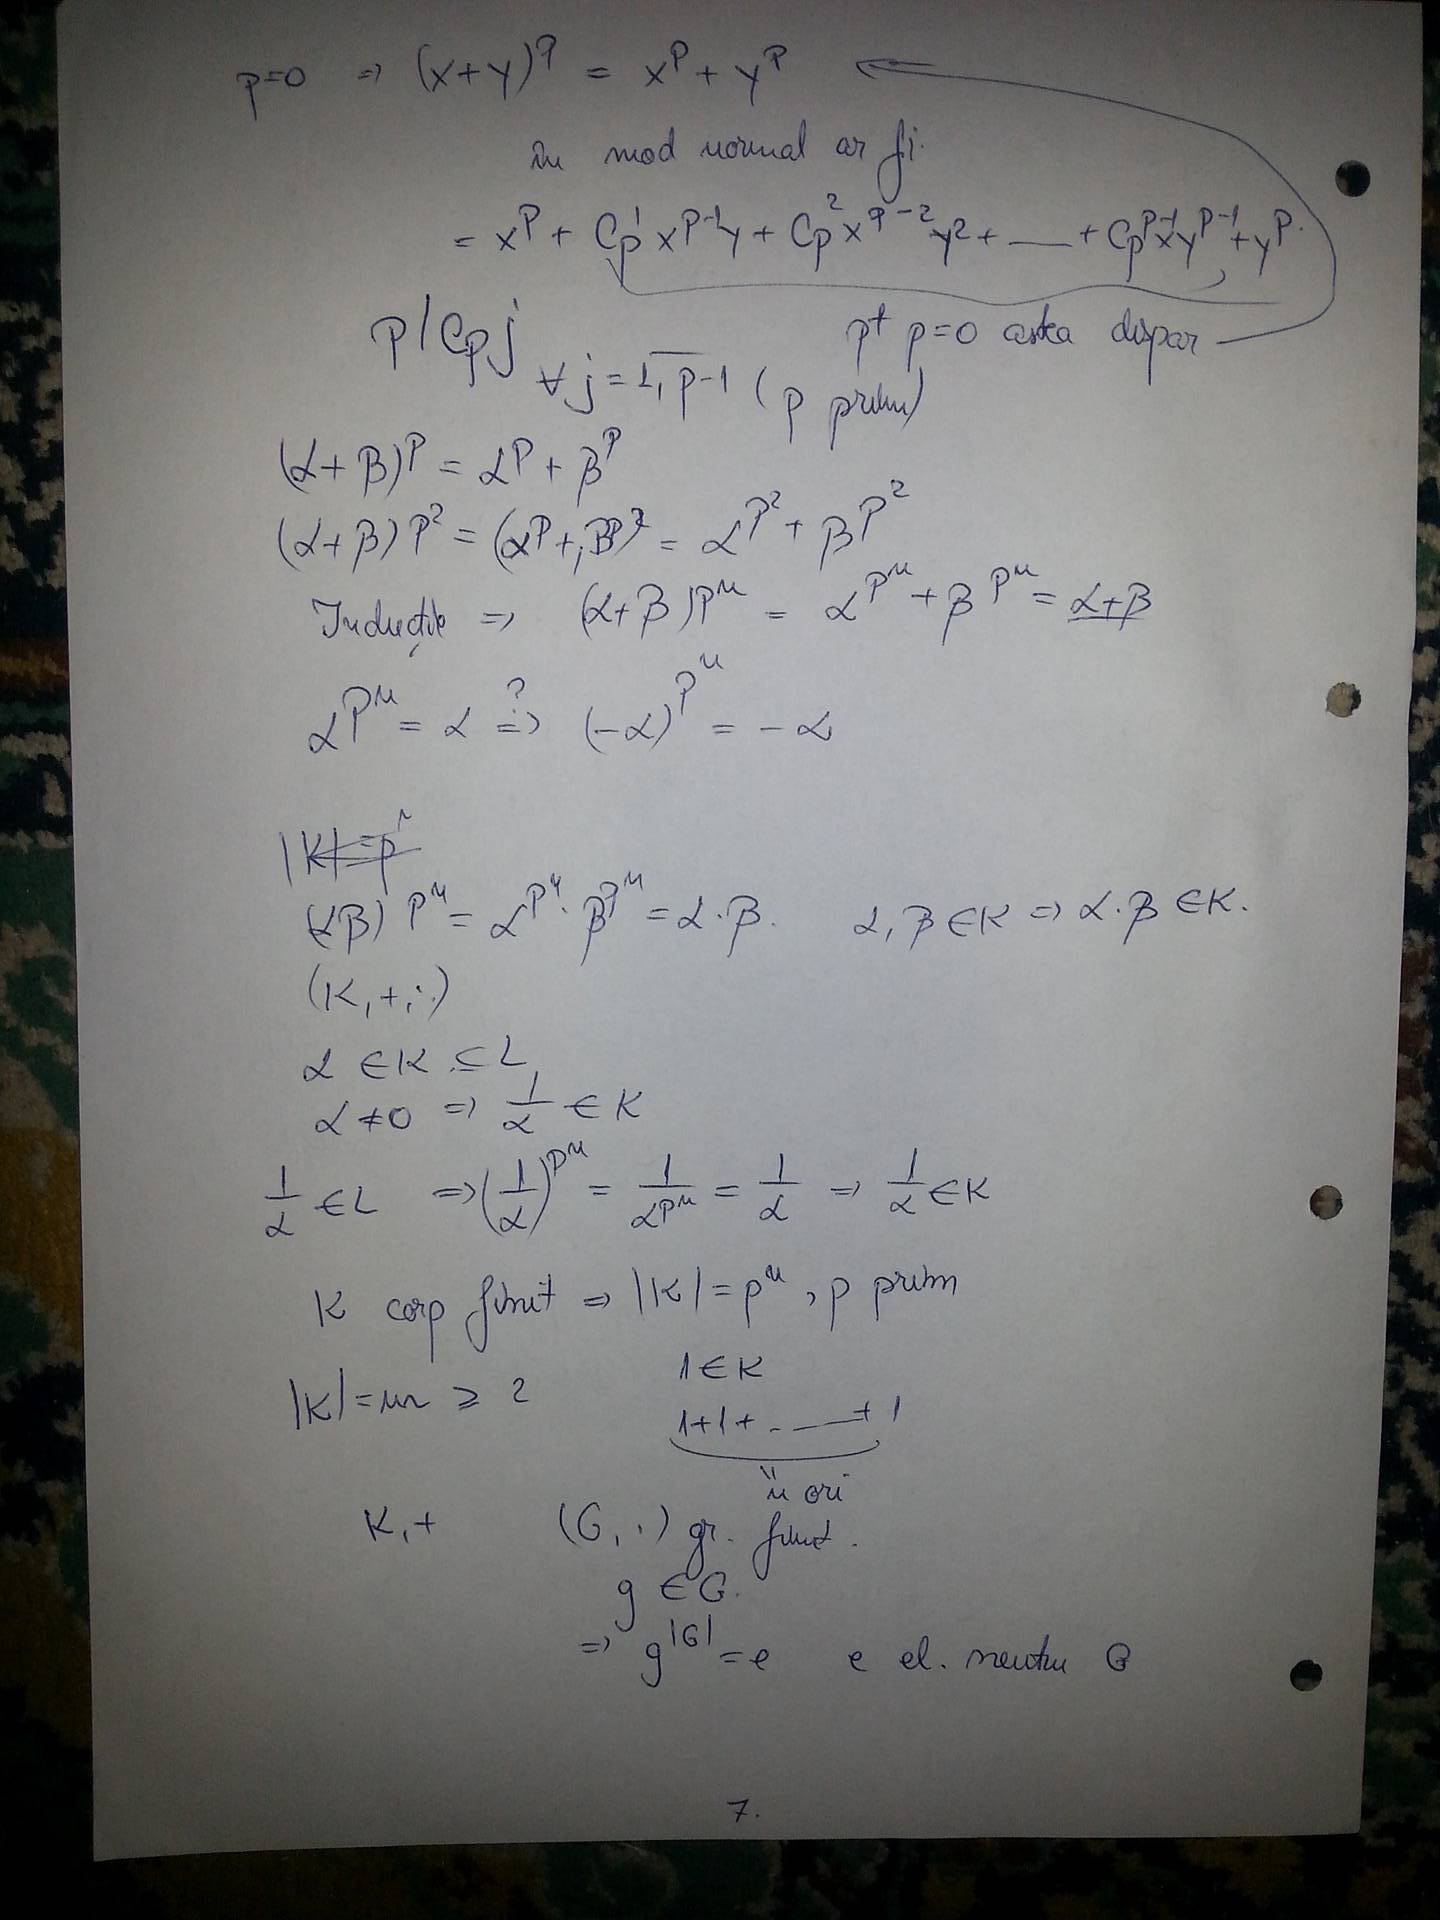 p=0 ⇒ (x+y)^p = x^p + y^p
în mod normal ar fi.
= x^p + C_p^1 x^{p-1}y + C_p^2 x^{p-2} y^2 + — + C_p^{p-1} x y^{p-1} + y^p.
p | C_p^j ∀ j = 1, p-1 (p prim)
pt p=0 astea dispar
(α+β)^p = α^p + β^p
(α+β)^{p^2} = (α^p + β^p)^p = α^{p^2} + β^{p^2}
Inducție ⇒ (α+β)^{p^n} = α^{p^n} + β^{p^n} = α+β
α^{p^n} = α ⇒? (-α)^{p^n} = -α
|K| = p^n
(αβ)^{p^n} = α^{p^n} · β^{p^n} = α·β. α, β ∈ K ⇒ α·β ∈ K.
(K, +, ·)
α ∈ K ⊆ L
α ≠ 0 ⇒ 1/α ∈ K
1/α ∈ L ⇒ (1/α)^{p^n} = 1/α^{p^n} = 1/α ⇒ 1/α ∈ K
K corp finit ⇒ |K| = p^n, p prim
|K| = m ≥ 2 1 ∈ K
1+1+ - — + 1
n ori
K, + (G, ·) gr. finit.
g ∈ G.
⇒ g^{|G|} = e e el. neutru G
7.